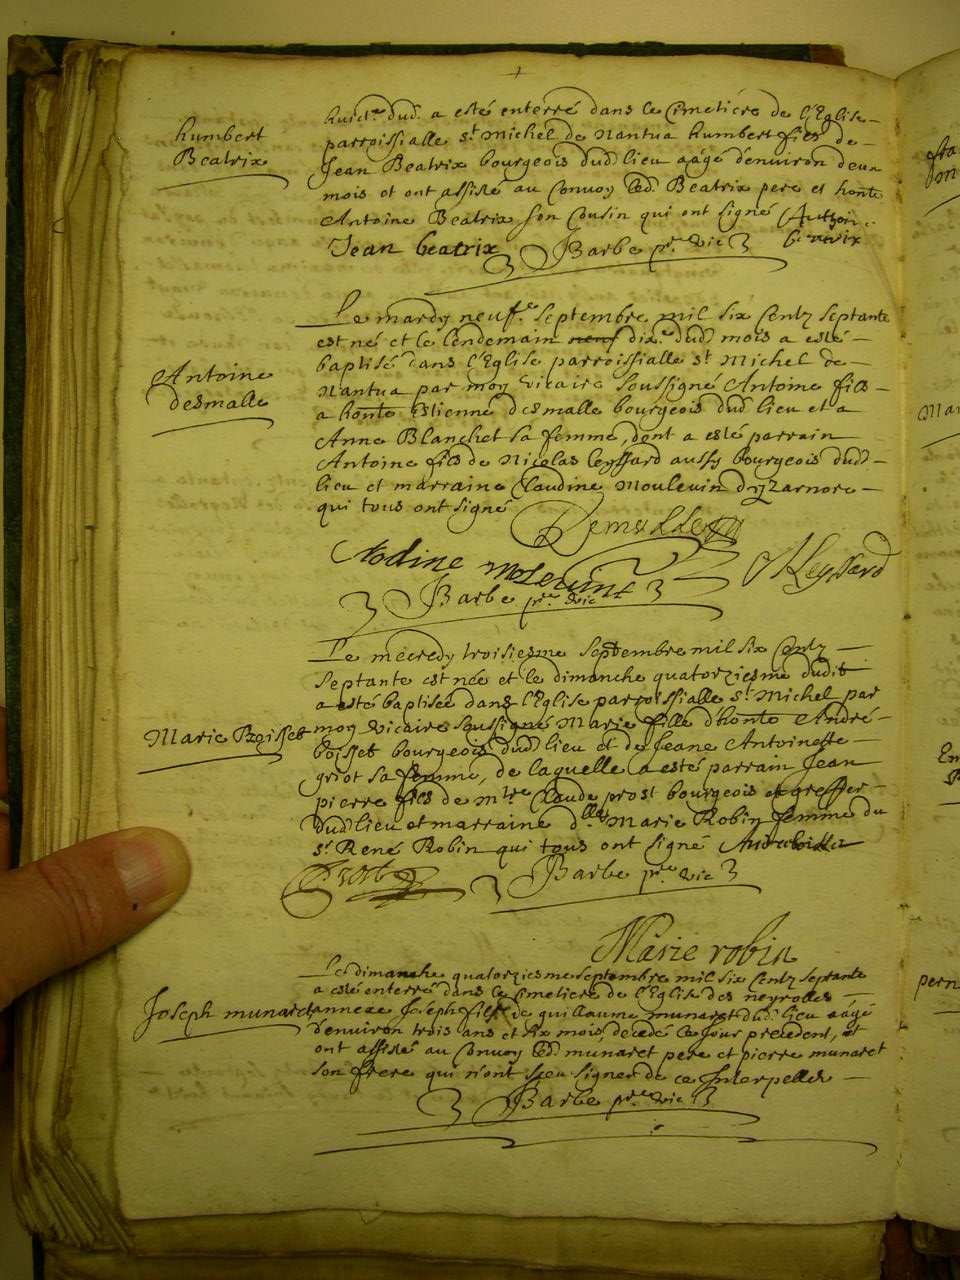 humbert
Beatrix
huict.e dud. a esté enterré dans le Cimetiere de l'Eglise
parroissialle s.t Michel de Nantua humbert fils de
Jean Beatrix bourgeois dud lieu aâgé d'environ deux
mois et ont assisté au Convoy led. Beatrix pere et hon.te
Antoine Beatrix son Cousin qui ont signé Anthoin
Jean beatrix Barbe p.re vic beatrix
Antoine
desmalle
Le mardy neuf.e septembre mil six Centz septante
est né et le lendemain neuf dix.e dud mois a esté
baptisé dans l'Eglise parroissialle s.t Michel de
Nantua par moy vicaire soussigné Antoine fils
a honte Estienne desmalle bourgeois dud lieu et a
Anne Blanchet sa femme, dont a esté parrain
Antoine fils de Nicolas leyssard aussy bourgeois dud
lieu et marraine Claudine Moulevin d'yzarnore
qui tous ont signé
Barbe p.re vic
Marie Boisset
Le mecredy troisiesme septembre mil six Centz
septante est née et le dimanche quatorziesme dudit
a esté baptisée dans l'Eglise parroissialle s.t Michel par
moy vicaire soussigné Marie fille d'honte André
boisset bourgeois dud lieu et de Jeane Antoinette
griot sa femme, de laquelle a esté parrain Jean
pierre fils de m.tre Claude prost bourgeois et greffier
dud lieu et marraine d.lle Marie Robin femme du
s.r René Robin qui tous ont signé
Barbe p.re vic
Marie robin
Joseph munaret
Le dimanche quatorziesme septembre mil six Centz septante
a esté enterré dans le Cimetiere de l'Eglise des neyrolles
annexe Joseph fils de guillaume munaret dud. lieu aâgé
d'environ trois ans et six mois, decedé le Jour precedent, et
ont assisté au Convoy led munaret pere et pierre munaret
son frere qui n'ont sceu signer de ce Interpellés
Barbe p.re vic